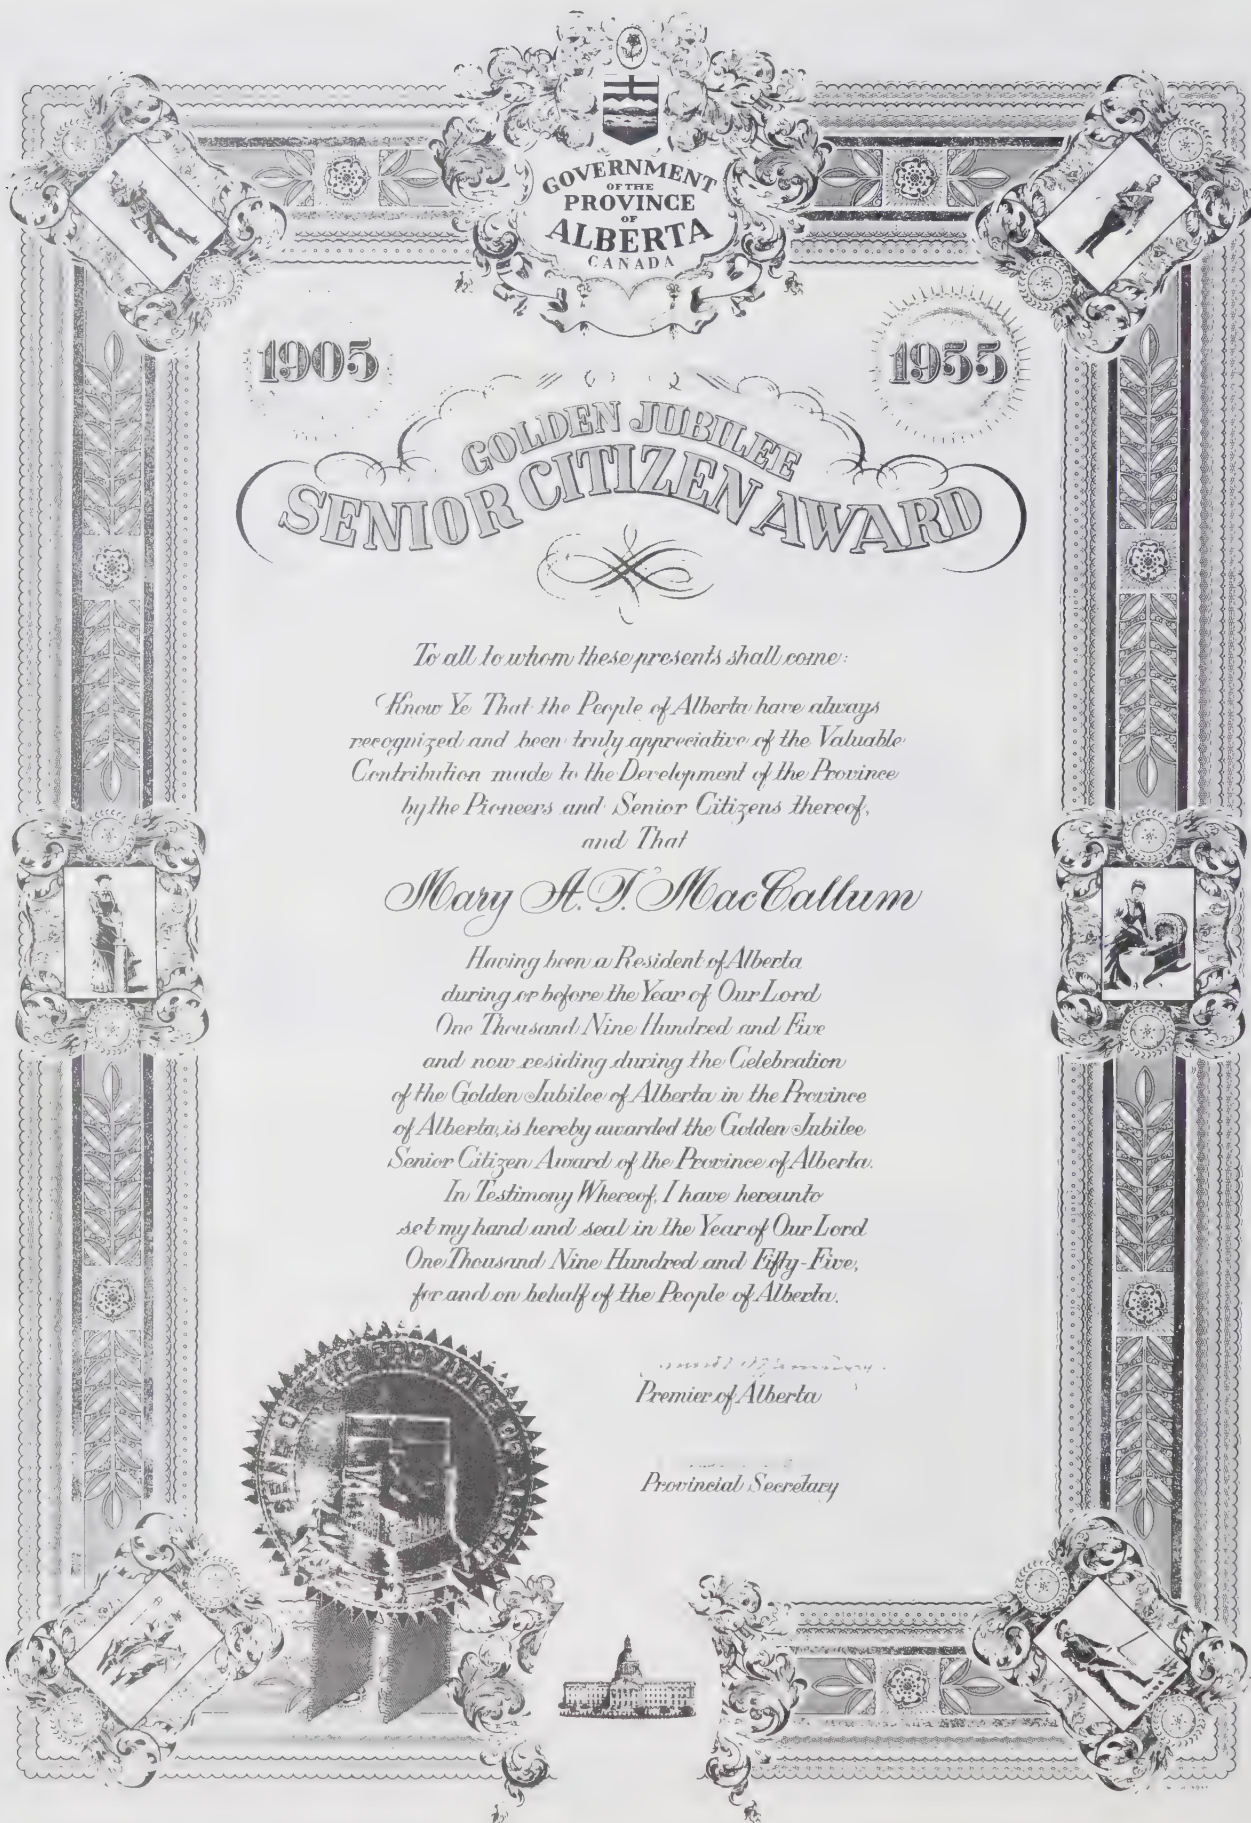 GOVERNMENT
OF THE
PROVINCE
OF
ALBERTA
CANADA
1905
1955
GOLDEN JUBILEE
SENIOR CITIZEN AWARD
To all to whom these presents shall come:
Know Ye That the People of Alberta have always
recognized and been truly appreciative of the Valuable
Contribution made to the Development of the Province
by the Pioneers and Senior Citizens thereof,
and That
Mary A. T. MacCallum
Having been a Resident of Alberta
during or before the Year of Our Lord
One Thousand Nine Hundred and Five
and now residing during the Celebration
of the Golden Jubilee of Alberta in the Province
of Alberta, is hereby awarded the Golden Jubilee
Senior Citizen Award of the Province of Alberta.
In Testimony Whereof, I have hereunto
set my hand and seal in the Year of Our Lord
One Thousand Nine Hundred and Fifty-Five,
for and on behalf of the People of Alberta.
Premier of Alberta
Provincial Secretary
THE PROVINCE OF